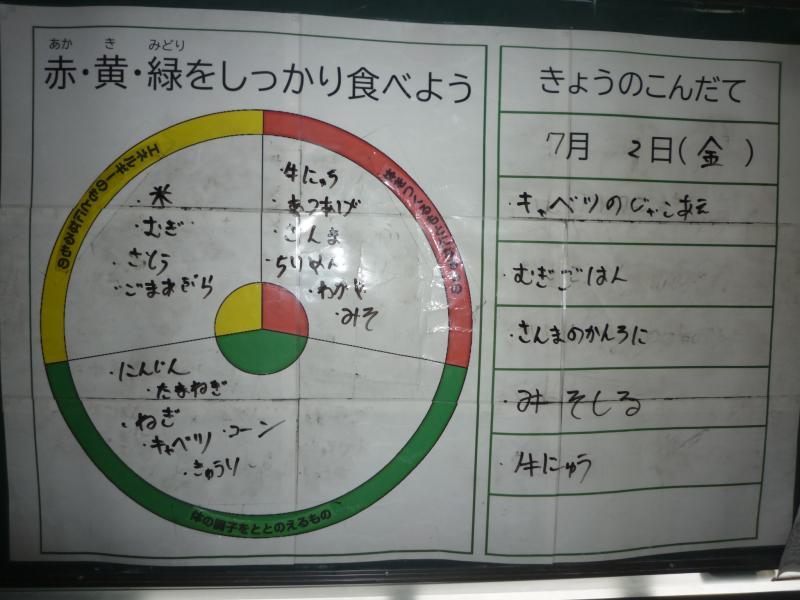 あか き みどり
赤・黄・緑をしっかり食べよう
エネルギーのもとになるもの
・米
・むぎ
・さとう
・ごまあぶら
体をつくるもとになるもの
・牛にゅう
・あつあげ
・さんま
・ちりめん
・わかめ
・みそ
・にんじん
・たまねぎ
・ねぎ
・キャベツ ・コーン
・きゅうり
体の調子をととのえるもの
きょうのこんだて
7月 2日(金)
・キャベツのじゃこあえ
・むぎごはん
・さんまのかんろに
・みそしる
・牛にゅう